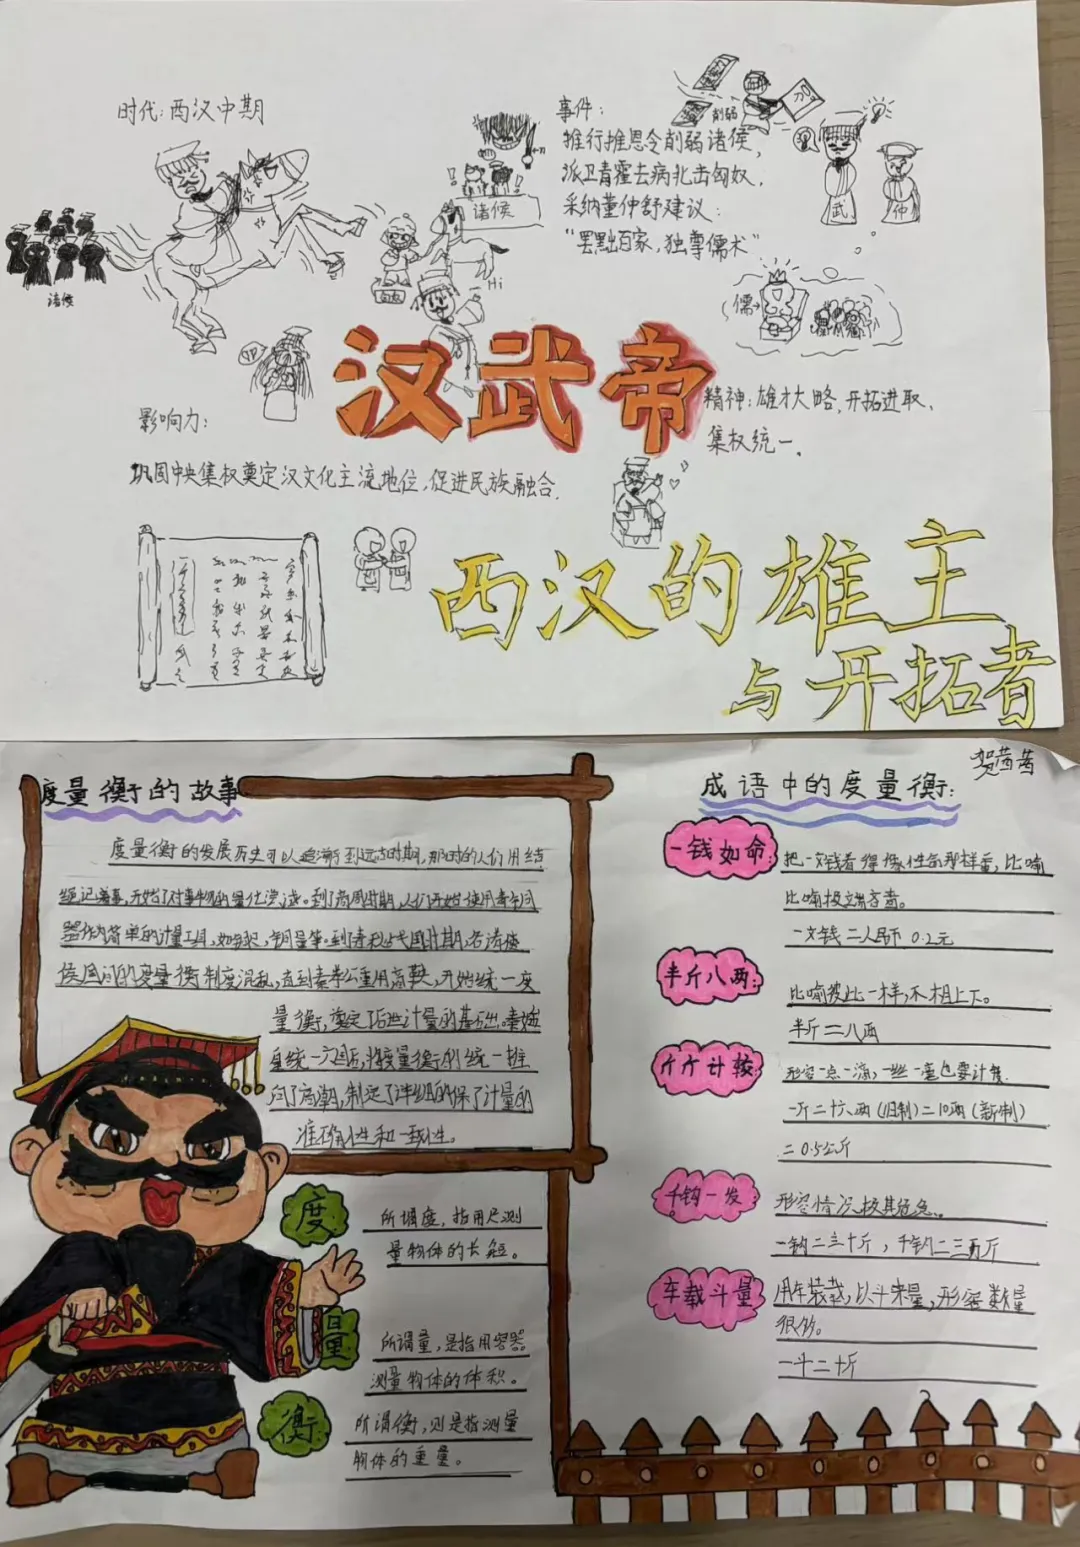 时代：西汉中期
诸侯
诸侯
Hi
事件：
推行推恩令削弱诸侯，
派卫青霍去病北击匈奴，
采纳董仲舒建议：
“罢黜百家，独尊儒术”
削弱
武
仲
儒
汉武帝
精神：雄才大略，开拓进取，
集权统一。
影响力：
巩固中央集权奠定汉文化主流地位，促进民族融合.
西汉的雄主
与开拓者
度量衡的故事
度量衡的发展历史可以追溯到远古时期，那时的人们用结
绳记事，开始了对事物的量化
到了商周时期，人们开始使用青铜
器作为简单的计量工具，
铜量等。到春秋战国时期，各诸侯
国间的度量衡制度混乱，直到秦孝公重用商鞅，开始统一度
量衡，奠定了后世计量的基础。秦始
皇统一六国后，将度量衡的统一推
向了高潮，制定了
保了计量的
准确性和一致性。
度
所谓度，指用尺测
量物体的长短。
量
所谓量，是指用容器
测量物体的体积。
衡
所谓衡，则是指测量
物体的重量。
贺茜茜
成语中的度量衡：
一钱如命：
把一文钱看得像性命那样重，比喻
比喻极端吝啬。
一文钱=人民币 0.2元
半斤八两：
比喻彼此一样，不相上下。
半斤=八两
斤斤计较
形容一点一滴，一丝一毫也要计较.
一斤=十六两（旧制）=10两（新制）
=0.5公斤
千钧一发：
形容情况极其危急。
一钧=三十斤，千钧=三万斤
车载斗量
用车装载，以斗来量，形容数量
很多。
一斗=十斤